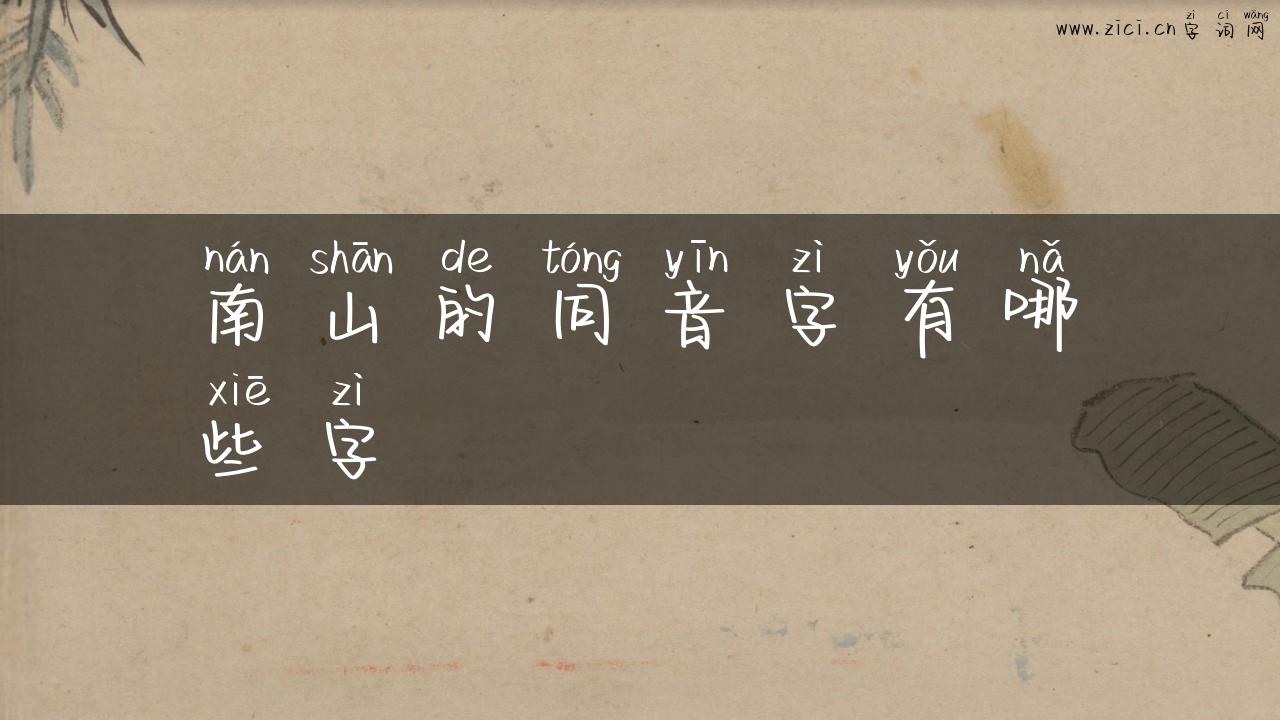 zì cí wǎng
www.zici.cn 字 词 网
nán shān de tóng yīn zì yǒu nǎ
南 山 的 同 音 字 有 哪
xiē zì
些 字